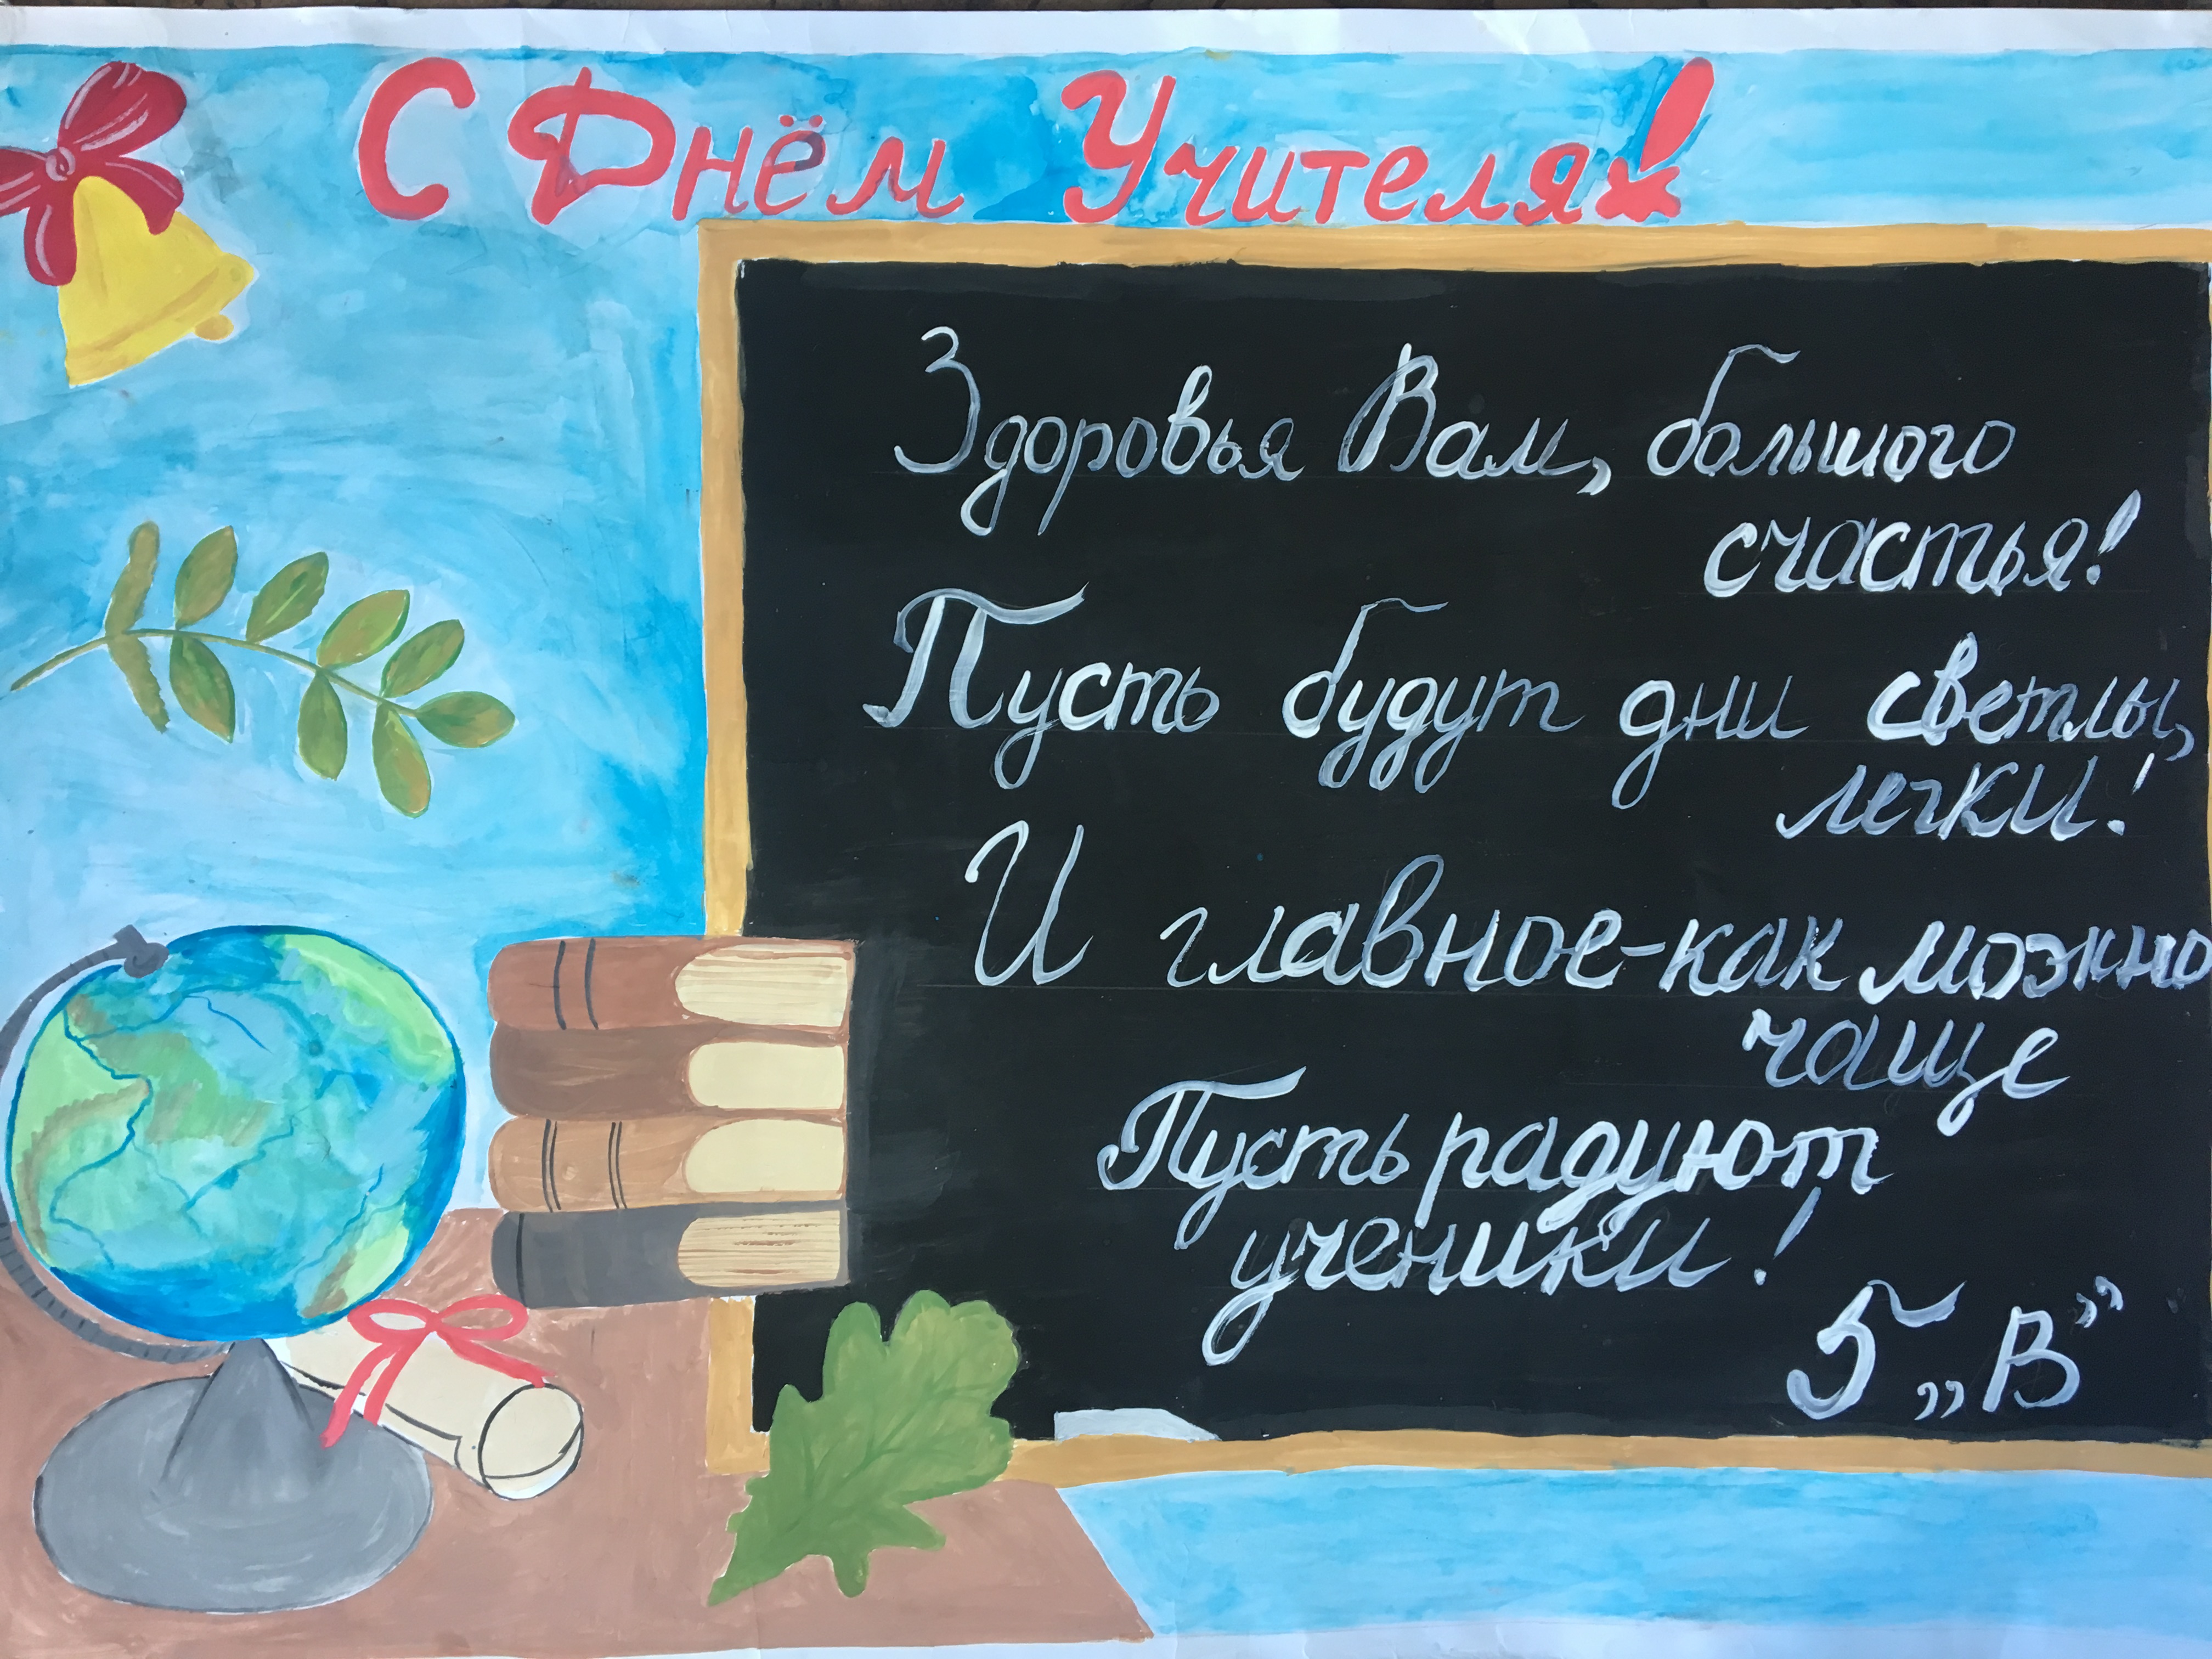 С Днём Учителя!
Здоровья Вам, большого
счастья!
Пусть будут дни светлы,
легки!
И главное-как можно
чаще
Пусть радуют
ученики!
5 „В”